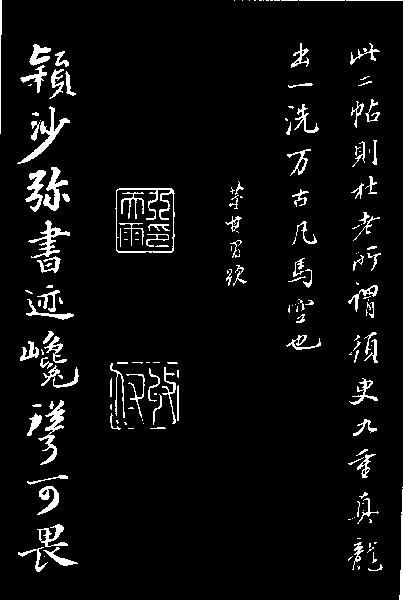 此二帖則杜老所謂須臾九重真龍
出一洗万古凡馬空也
董其昌跋
穎沙弥書迹巉㟧可畏